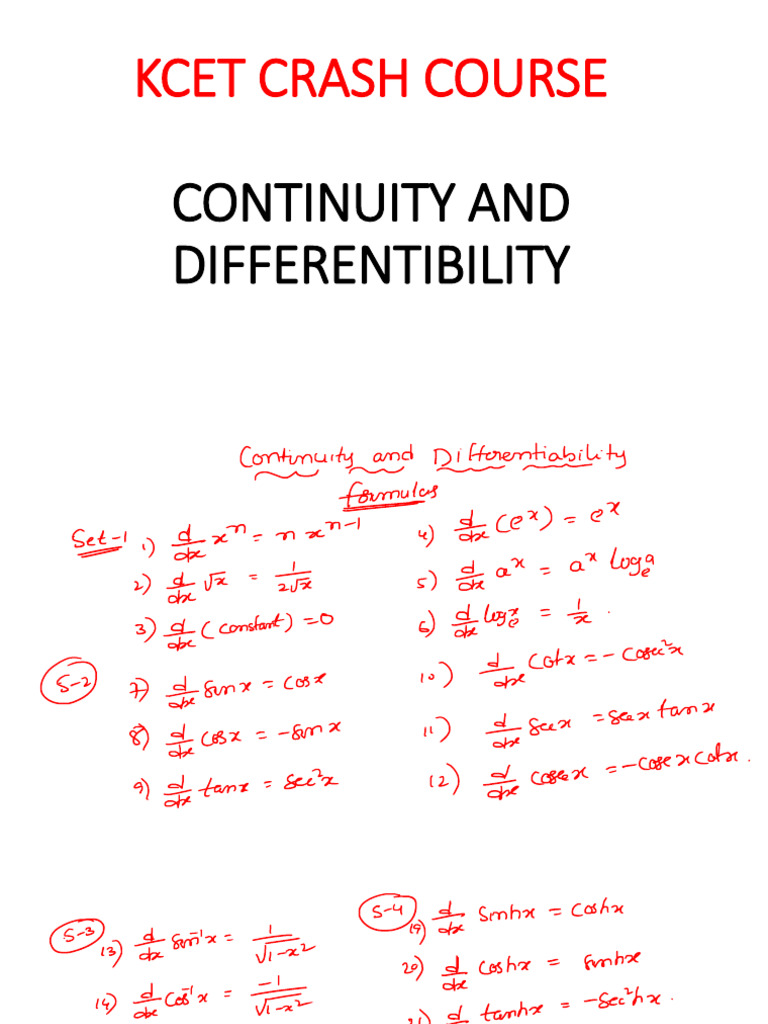 KCET CRASH COURSE
CONTINUITY AND
DIFFERENTIBILITY
Continuity and Differentiability
formulas
Set-1
1) d/dx xⁿ = n xⁿ⁻¹
2) d/dx √x = 1/2√x
3) d/dx (constant) = 0
4) d/dx (eˣ) = eˣ
5) d/dx aˣ = aˣ logₑa
6) d/dx logₑx = 1/x .
S-2
7) d/dx sinx = cosx
8) d/dx cosx = -sinx
9) d/dx tanx = sec²x
10) d/dx cotx = -cosec²x
11) d/dx secx = secx tanx
12) d/dx cosecx = -cosecx cotx .
S-3
13) d/dx sin⁻¹x = 1/√1-x²
14) d/dx cos⁻¹x = -1/√1-x²
S-4
19) d/dx sinhx = coshx
20) d/dx coshx = sinhx
21) d/dx tanhx = -sec²hx .